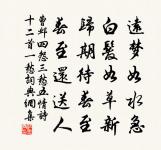 遠夢如水急
白髮如草新
歸期待春至
春至還送人
曹鄴四怨三愁五情詩
十二首一愁詞典網集